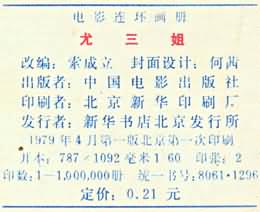 电影连环画册
尤三姐
改编：索成立 封面设计：何茜
出版者：中国电影出版社
印刷者：北京新华印刷厂
发行者：新华书店北京发行所
1979年4月第一版北京第一次印刷
开本：787/1092毫米1/60 印张：2
印数：1—1,000,000册 统一书号：8061·1296
定价：0.21元